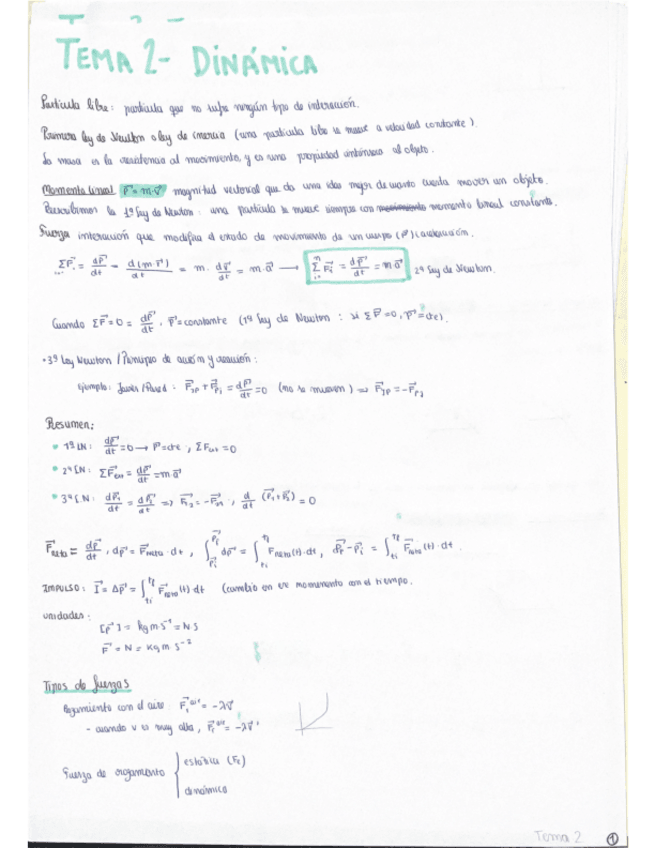 TEMA 2- DINÁMICA
Partícula libre: partícula que no sufre ningún tipo de interacción.
Primera ley de Newton o ley de inercia (una partícula libre se mueve a velocidad constante).
La masa es la resistencia al movimiento, y es una propiedad intrínseca al objeto.
Momento lineal p⃗ = m·v⃗ magnitud vectorial que da una idea mejor de cuanto cuesta mover un objeto.
Reescribimos la 1ª Ley de Newton: una partícula se mueve siempre con movimiento momento lineal constante.
Fuerza interacción que modifica el estado de movimiento de un cuerpo (p⃗) aceleración.
ΣF⃗ᵢ = dp⃗/dt = d(m·v⃗)/dt = m·dv⃗/dt = m·a⃗ → Σ F⃗ᵢ = dp⃗/dt = m·a⃗ 2ª Ley de Newton.
Cuando ΣF⃗=0 = dp⃗/dt, p⃗=constante (1ª Ley de Newton: si ΣF⃗=0, p⃗=cte).
·3ª Ley Newton / Principio de acción y reacción:
Ejemplo: Javier/Pared: F⃗JP + F⃗PJ = dp⃗/dt = 0 (no se mueven) ⇒ F⃗JP = -F⃗PJ
Resumen:
• 1ª LN: dp⃗/dt = 0 → p⃗=cte, ΣFext = 0
• 2ª LN: ΣF⃗ext = dp⃗/dt = m·a⃗
• 3ª LN: dp⃗₁/dt = dp⃗₂/dt ⇒ F⃗₁₂ = -F⃗₂₁, d/dt (p⃗₁+p⃗₂) = 0
F⃗neta = dp⃗/dt, dp⃗ = F⃗neta·dt, ∫ dp⃗ = ∫ F⃗neta(t)·dt, p⃗f - p⃗i = ∫ F⃗neta(t)·dt.
IMPULSO: I⃗ = Δp⃗ = ∫ F⃗neta(t)·dt (cambio en el momento con el tiempo.
unidades:
[p⃗] = kg m s⁻¹ = N·s
F⃗ = N = kg m s⁻²
Tipos de fuerzas
Rozamiento con el aire: F⃗ᵣᵃⁱʳᵉ = -λv⃗
- cuando v es muy alta, F⃗ᵣᵃⁱʳᵉ = -λv⃗
Fuerza de rozamiento
estática (FE)
dinámica
Tema 2 1